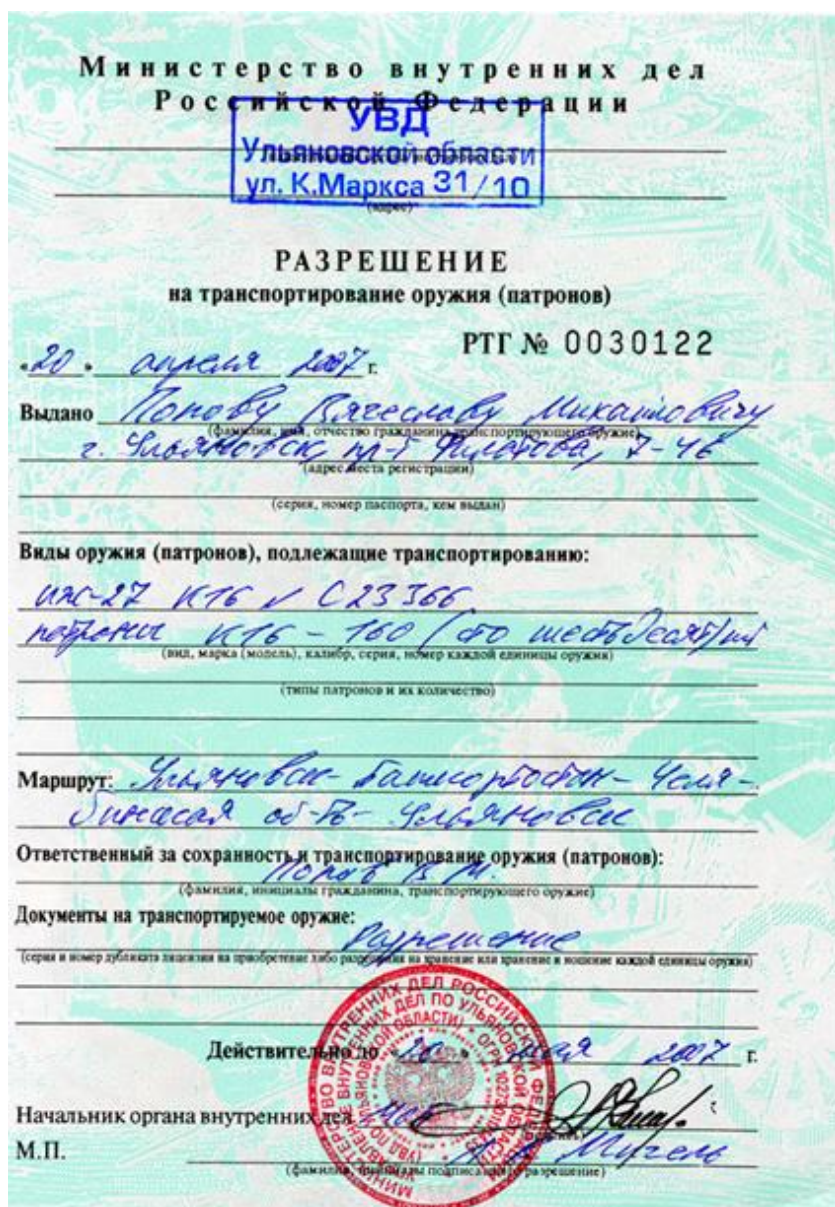 Министерство внутренних дел
Российской Федерации
УВД
Ульяновской области
ул. К.Маркса 31/10
(адрес)
РАЗРЕШЕНИЕ
на транспортирование оружия (патронов)
РТГ № 0030122
«20» апреля 2007 г.
Выдано Попову Вячеславу Михайловичу
(фамилия, имя, отчество гражданина транспортирующего оружие)
г. Ульяновск, пр-т Филатова, 7-46
(адрес места регистрации)
(серия, номер паспорта, кем выдан)
Виды оружия (патронов), подлежащие транспортированию:
иж-27 К16 № С23366
патроны К16 - 160 (сто шестьдесят) шт
(вид, марка (модель), калибр, серия, номер каждой единицы оружия)
(типы патронов и их количество)
Маршрут: Ульяновск - Башкортостан - Челя-
бинская об-ть - Ульяновск
Ответственный за сохранность и транспортирование оружия (патронов):
Попов В.М.
(фамилия, инициалы гражданина, транспортирующего оружие)
Документы на транспортируемое оружие:
Разрешение
(серия и номер дубликата лицензии на приобретение либо разрешения на хранение или хранение и ношение каждой единицы оружия)
Действительно до «20» мая 2007 г.
Начальник органа внутренних дел
М.П. Мигель
(фамилия, инициалы подписавшего разрешение)